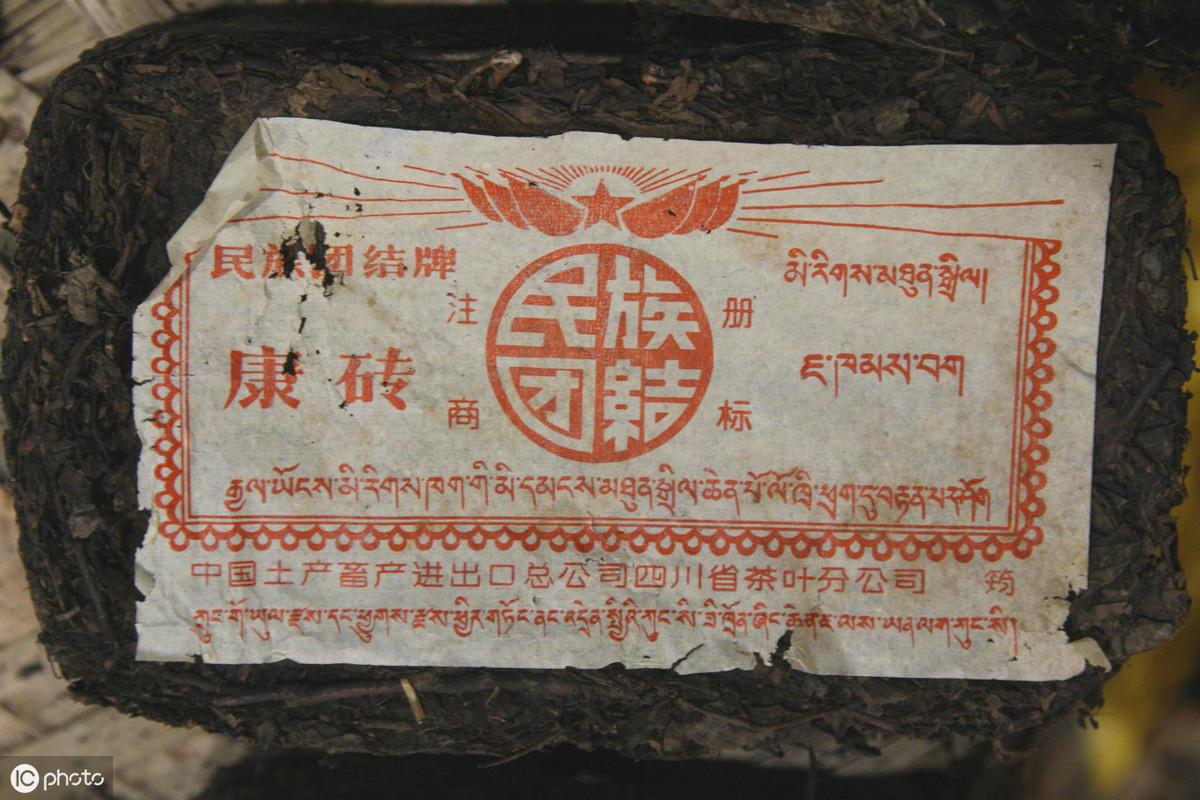 民族团结牌
མི་རིགས་མཐུན་སྒྲིལ།
注 册
民族
团結
康砖
ཇ་ཁམས་བག
商 标
རྒྱལ་ཡོངས་མི་རིགས་ཁག་གི་མི་དམངས་མཐུན་སྒྲིལ་ཆེན་པོ་ལོ་ཁྲི་ཕྲག་ཏུ་བརྟན་པར་ཤོག
中国土产畜产进出口总公司四川省茶叶分公司
ཀྲུང་གོ་ཡུལ་རྫས་དང་ཕྱུགས་རྫས་ཕྱིར་གཏོང་ནང་འདྲེན་སྤྱིའི་ཀུང་སི་ཟི་ཁྲོན་ཞིང་ཆེན་ཇ་ལས་ཡན་ལག་ཀུང་སི།
IC photo